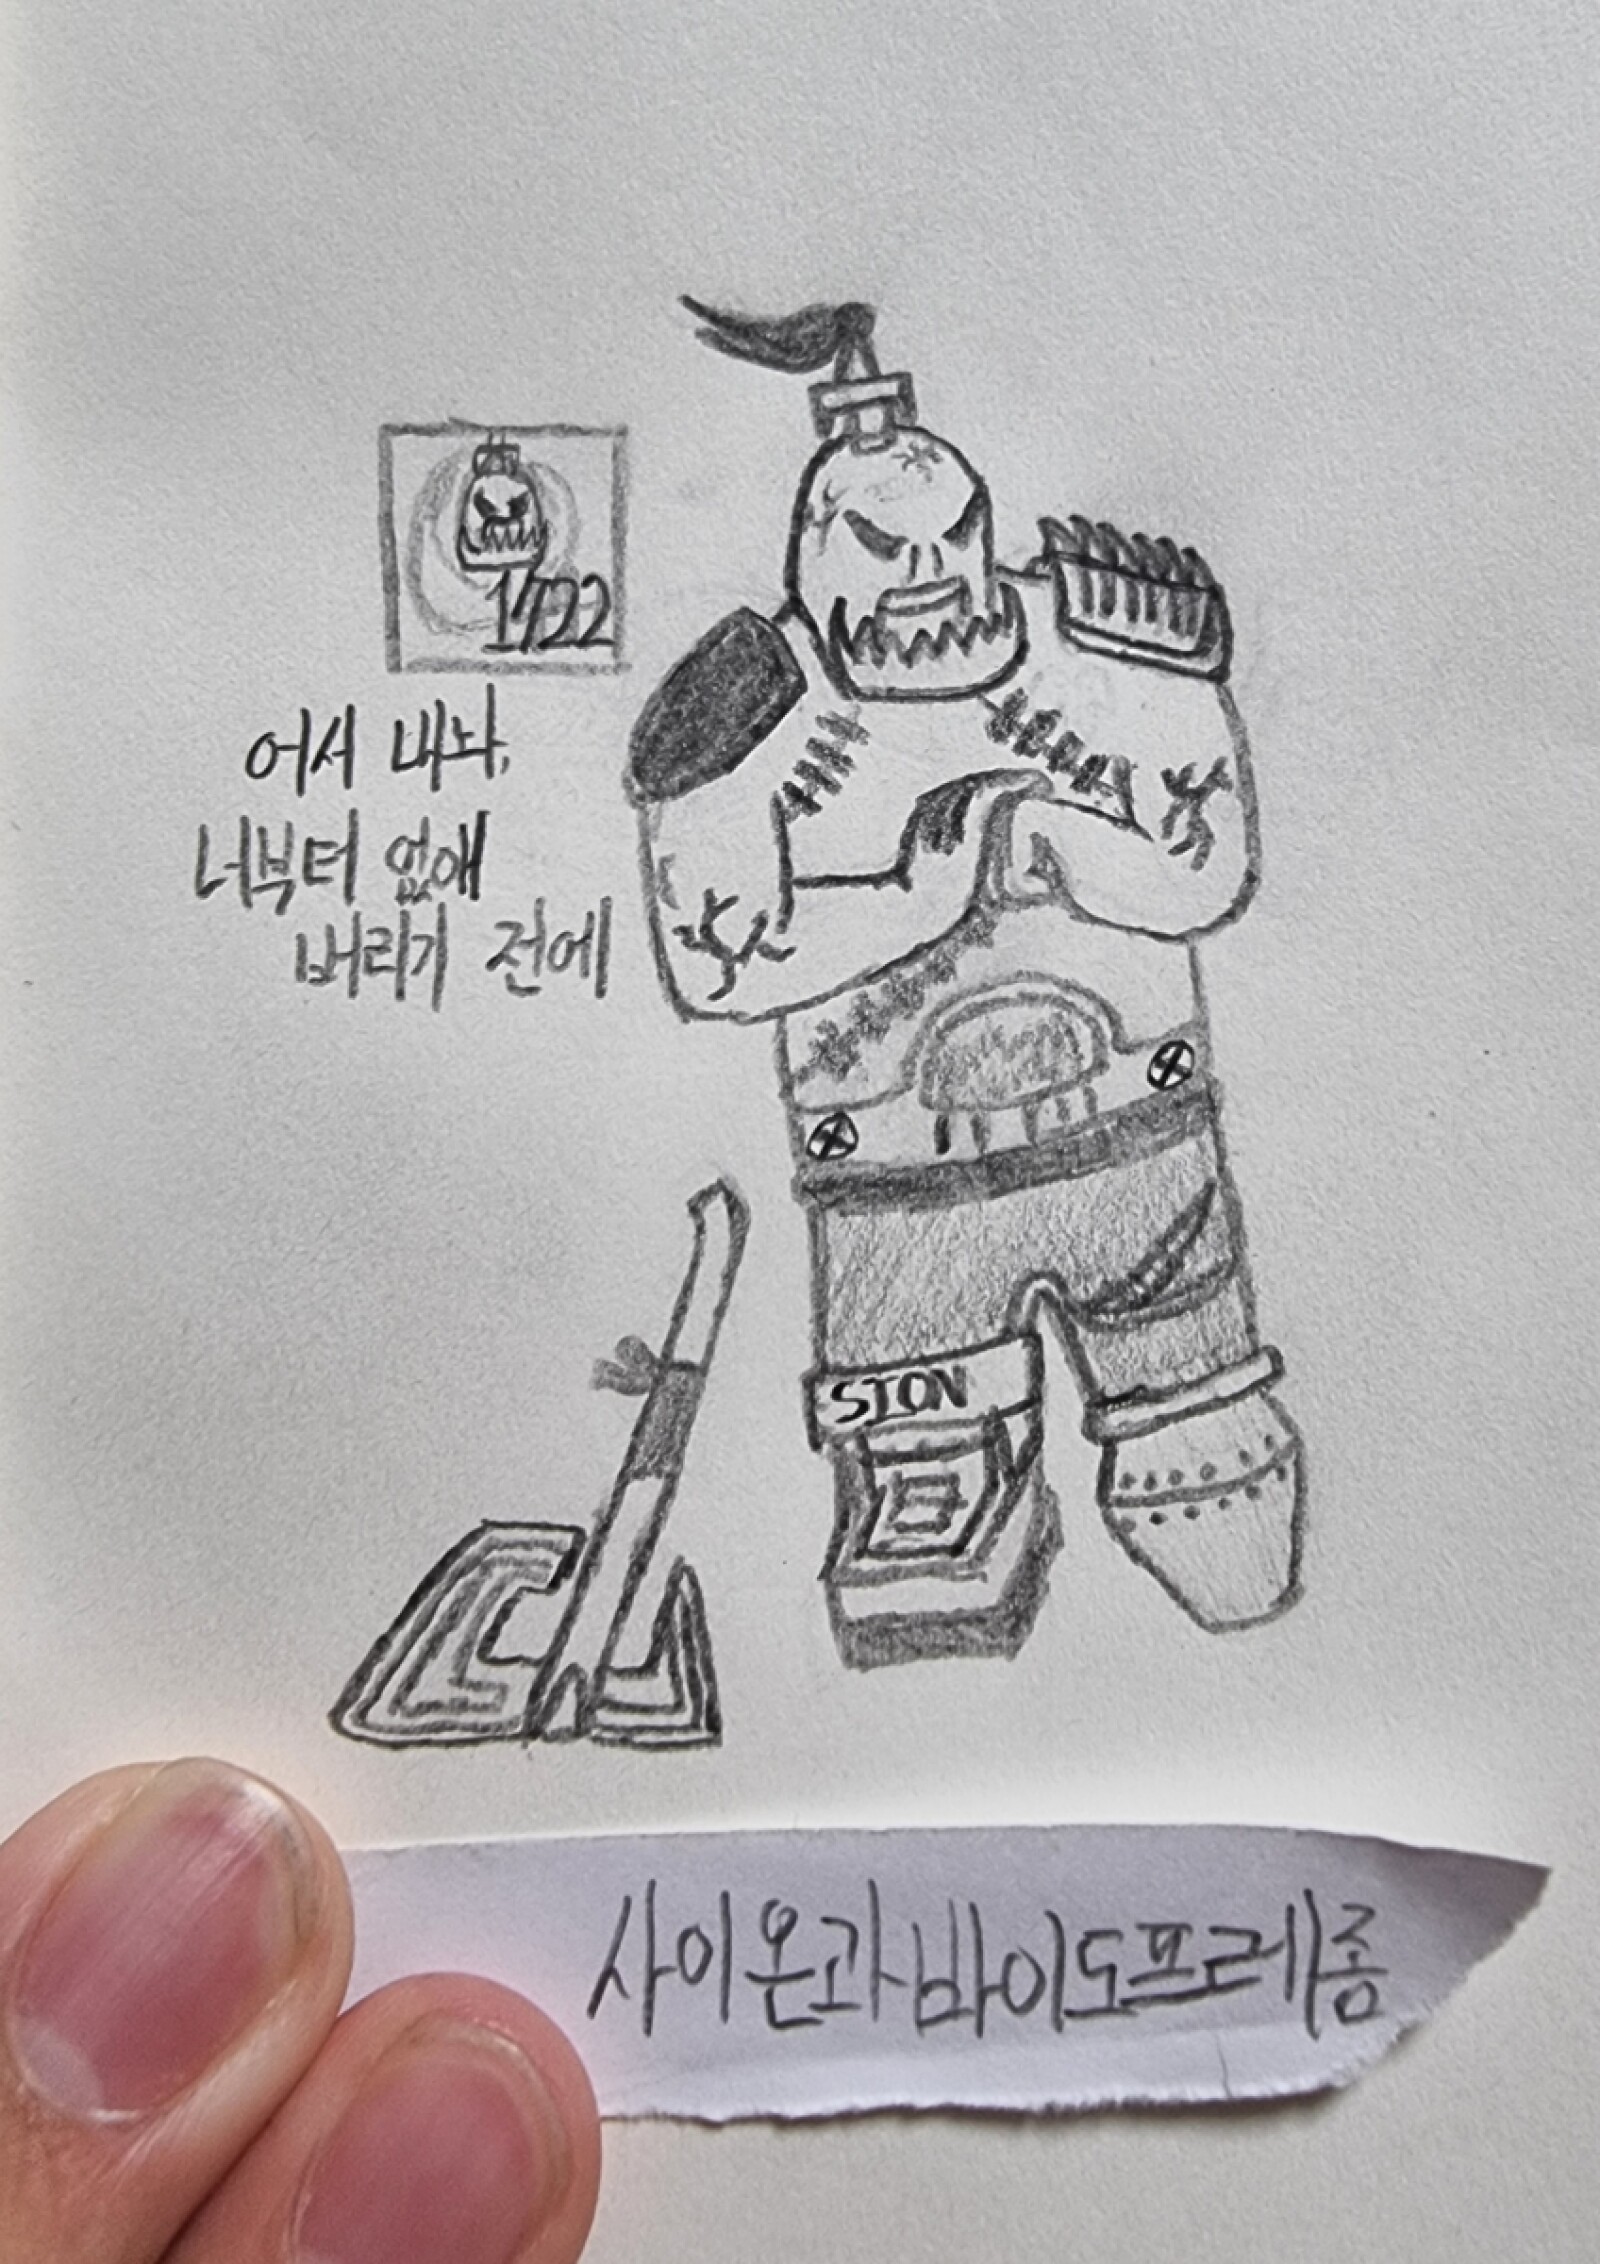 1722
어서 내놔,
너부터 없애
버리기 전에
SION
사이온과바이도프레좀